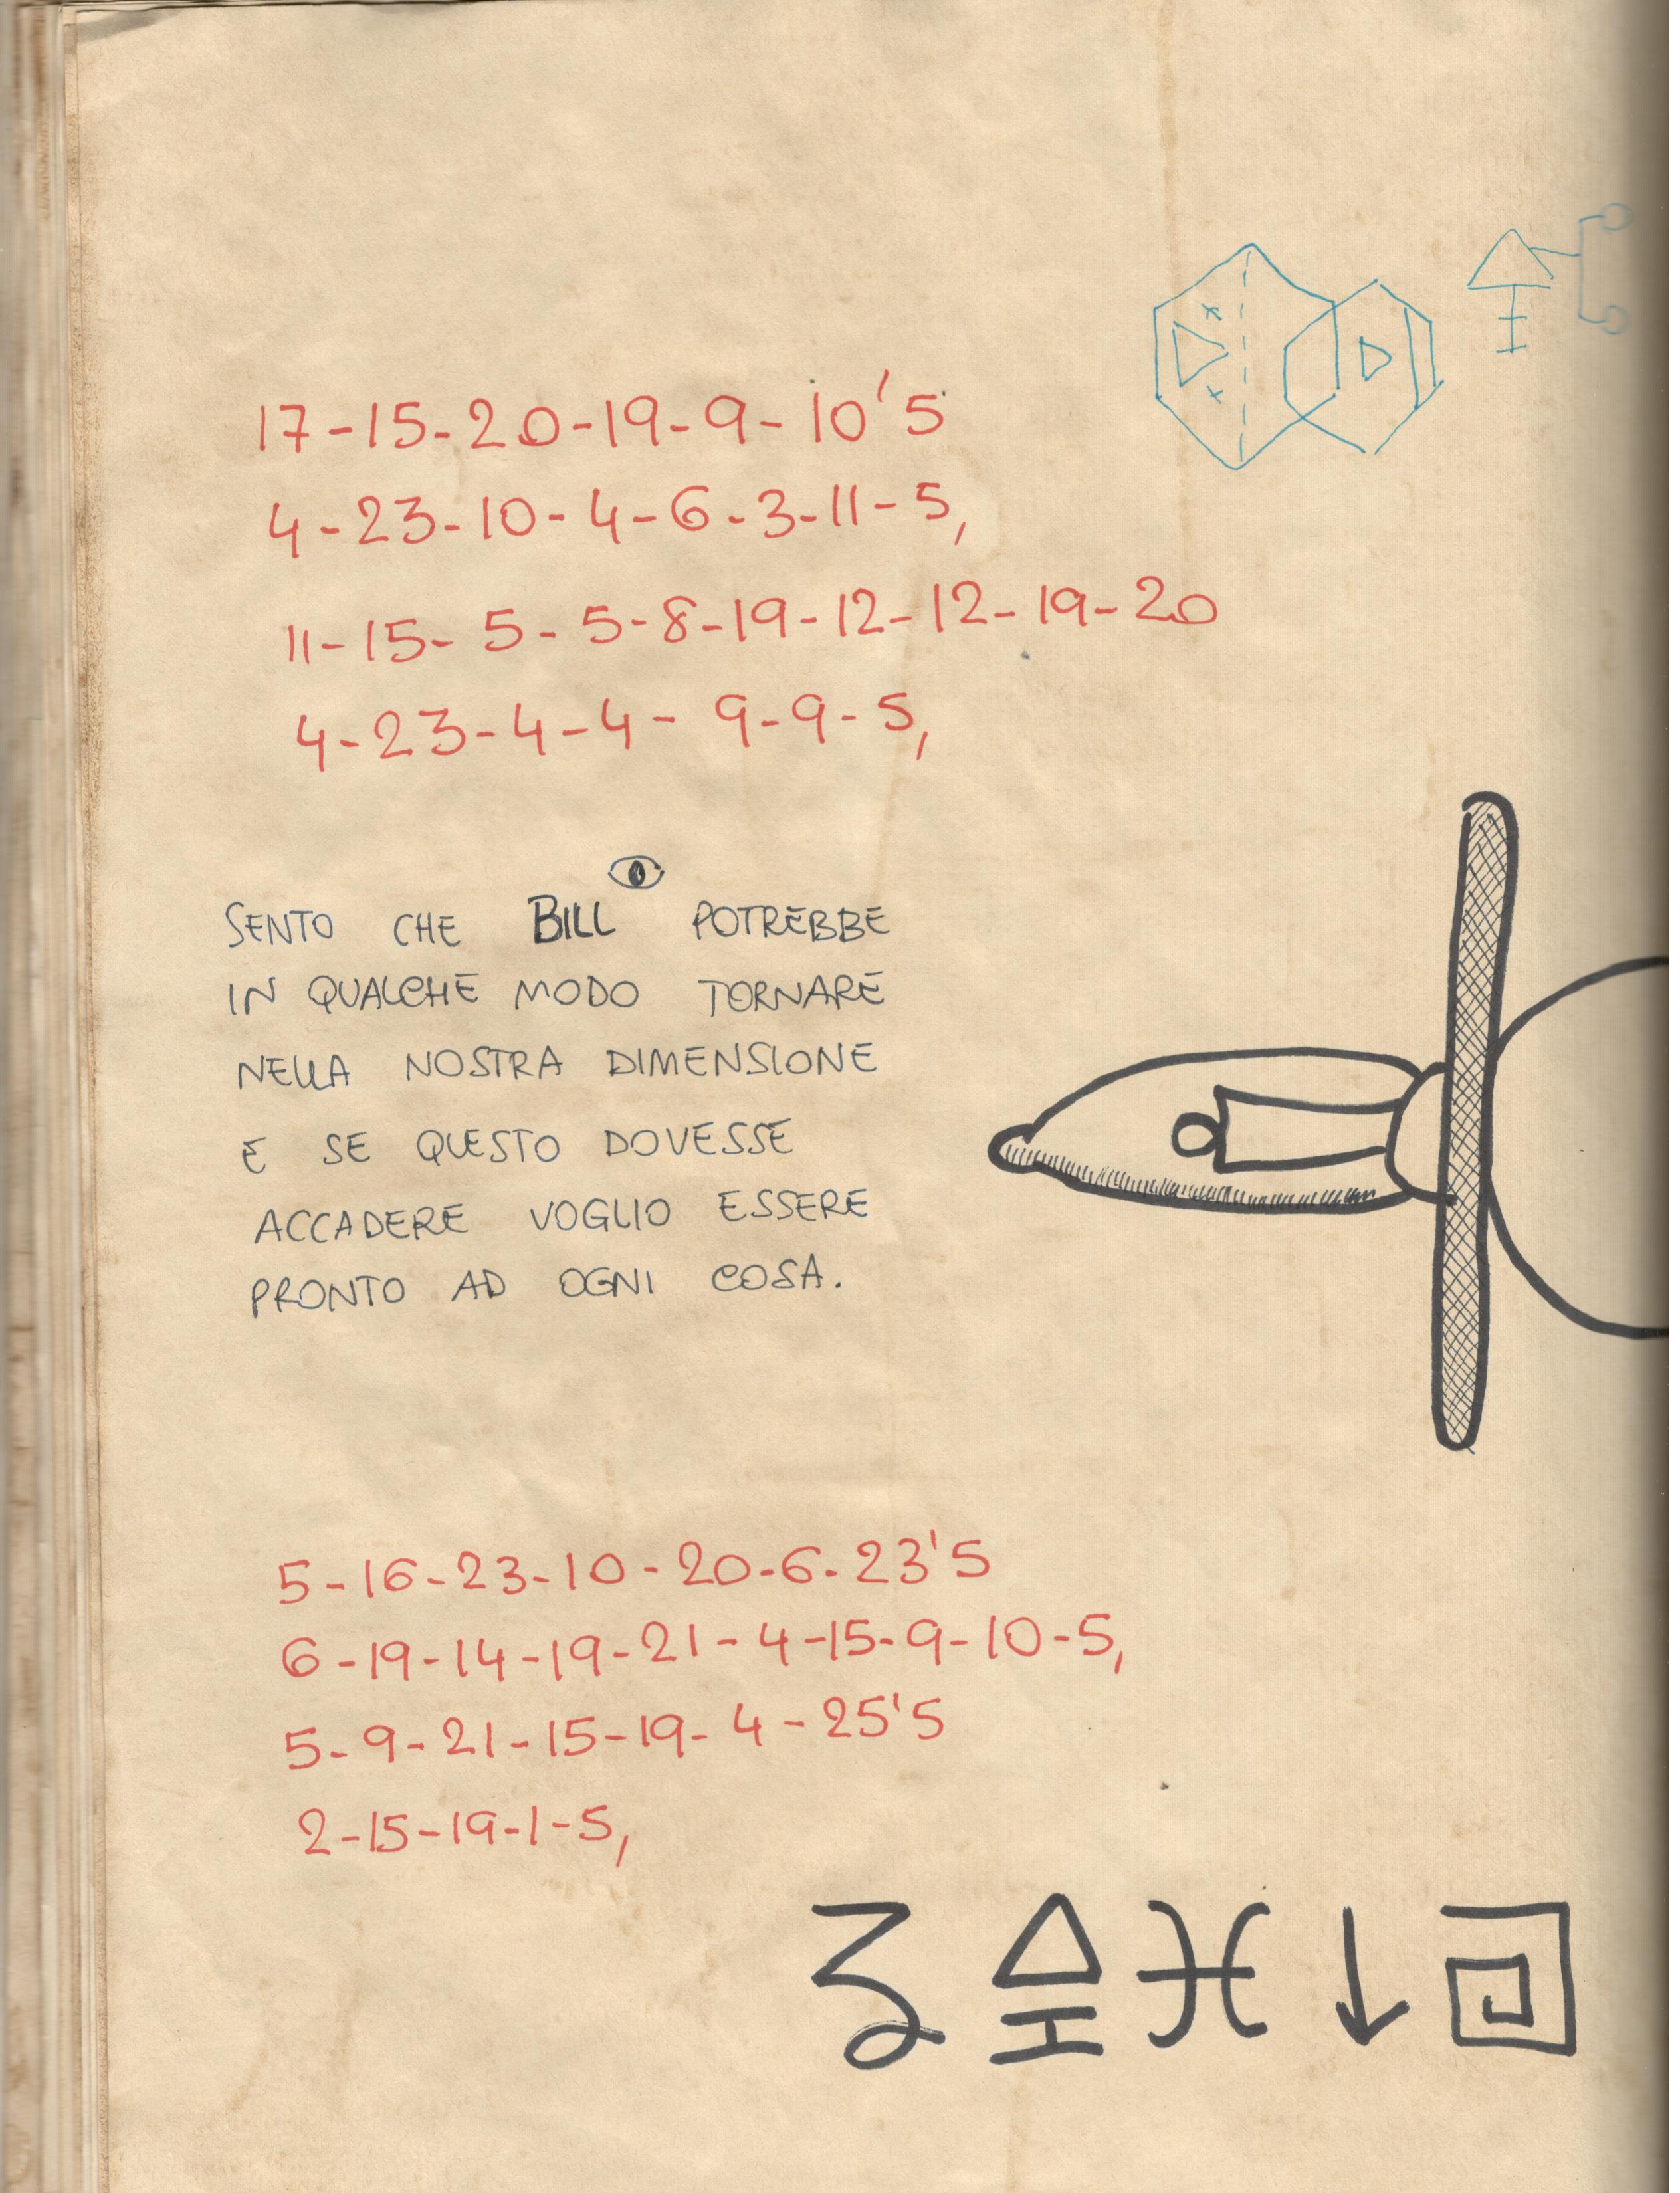 17-15-20-19-9-10'5
4-23-10-4-6-3-11-5,
11-15-5-5-8-19-12-12-19-20
4-23-4-4-9-9-5,
SENTO CHE BILL POTREBBE
IN QUALCHE MODO TORNARE
NELLA NOSTRA DIMENSIONE
E SE QUESTO DOVESSE
ACCADERE VOGLIO ESSERE
PRONTO AD OGNI COSA.
5-16-23-10-20-6-23'5
6-19-14-19-21-4-15-9-10-5,
5-9-21-15-19-4-25'5
2-15-19-1-5,